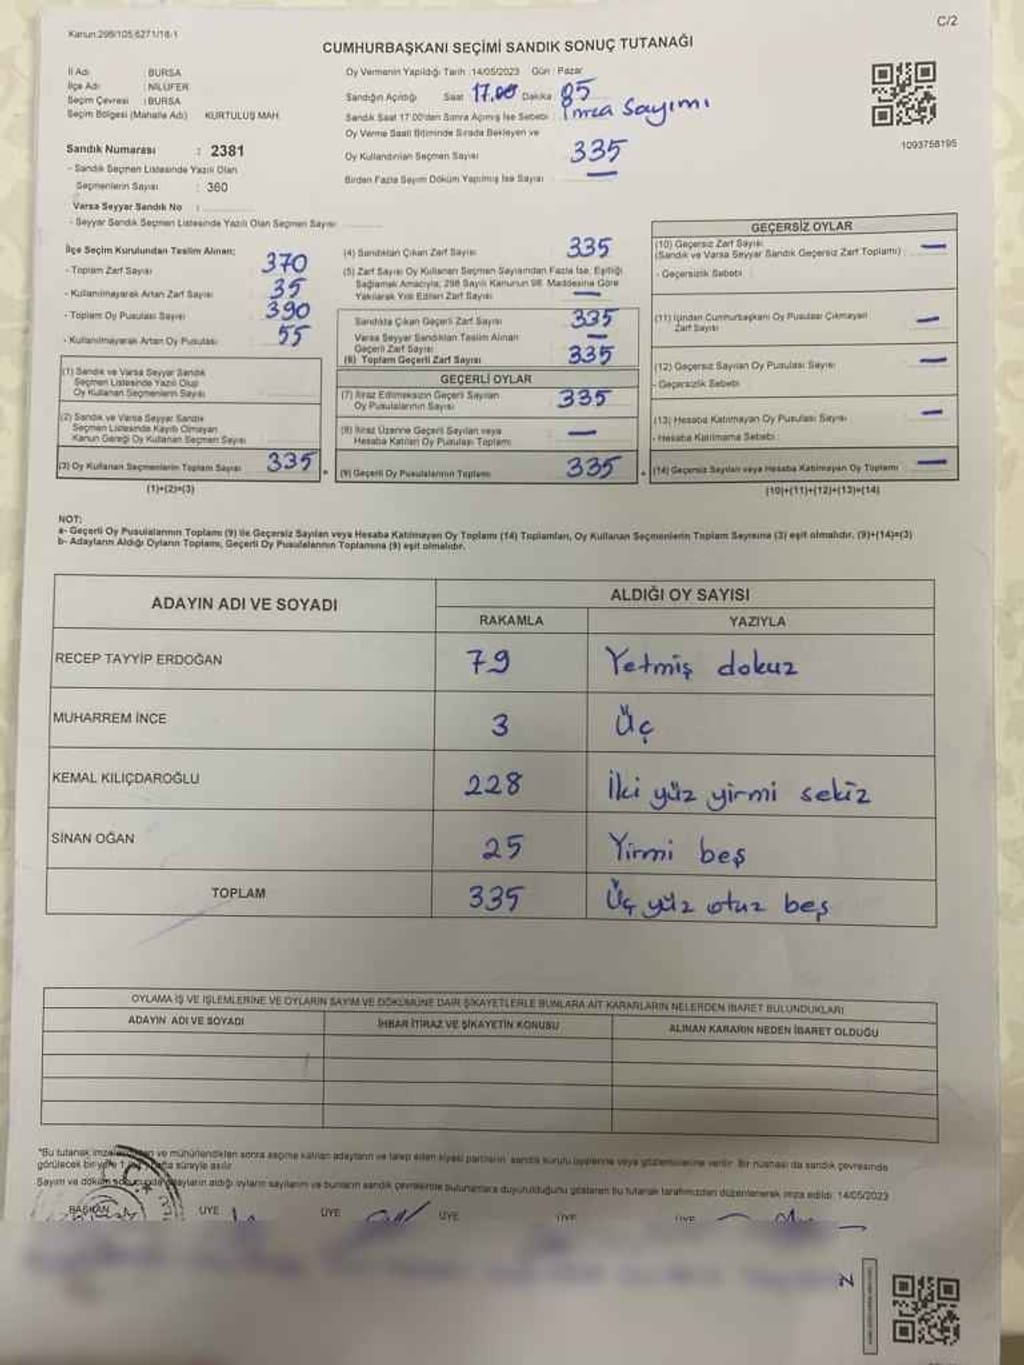 Kanun:298/105,6271/18-1
C/2
CUMHURBAŞKANI SEÇİMİ SANDIK SONUÇ TUTANAĞI
İl Adı : BURSA
İlçe Adı : NİLÜFER
Seçim Çevresi : BURSA
Seçim Bölgesi (Mahalle Adı) KURTULUŞ MAH.
Sandık Numarası : 2381
- Sandık Seçmen Listesinde Yazılı Olan
Seçmenlerin Sayısı : 360
Varsa Seyyar Sandık No :
- Seyyar Sandık Seçmen Listesinde Yazılı Olan Seçmen Sayısı :
Oy Vermenin Yapıldığı Tarih :14/05/2023 Gün : Pazar
Sandığın Açıldığı Saat 17.00 Dakika 05
Sandık Saat 17.00'den Sonra Açımış İse Sebebi : İmza Sayımı
Oy Verme Saati Bitiminde Sırada Bekleyen ve
Oy Kullandırılan Seçmen Sayısı 335
Birden Fazla Sayım Döküm Yapılmış İse Sayısı : —
1093758195
İlçe Seçim Kurulundan Teslim Alınan;
- Toplam Zarf Sayısı 370
- Kullanılmayarak Artan Zarf Sayısı 35
- Toplam Oy Pusulası Sayısı 390
- Kullanılmayarak Artan Oy Pusulası 55
(1) Sandık ve Varsa Seyyar Sandık
Seçmen Listesinde Yazılı Olup
Oy Kullanan Seçmenlerin Sayısı
(2) Sandık ve Varsa Seyyar Sandık
Seçmen Listesinde Kayıtlı Olmayan
Kanun Gereği Oy Kullanan Seçmen Sayısı
(3) Oy Kullanan Seçmenlerin Toplam Sayısı 335
(1)+(2)=(3)
(4) Sandıktan Çıkan Zarf Sayısı 335
(5) Zarf Sayısı Oy Kullanan Seçmen Sayısından Fazla İse, Eşitliği
Sağlamak Amacıyla, 298 Sayılı Kanunun 98. Maddesine Göre
Yakılarak Yok Edilen Zarf Sayısı —
Sandıkta Çıkan Geçerli Zarf Sayısı 335
Varsa Seyyar Sandıktan Teslim Alınan
Geçerli Zarf Sayısı —
(6) Toplam Geçerli Zarf Sayısı 335
GEÇERLİ OYLAR
(7) İtiraz Edilmeksizin Geçerli Sayılan
Oy Pusulalarının Sayısı 335
(8) İtiraz Üzerine Geçerli Sayılan veya
Hesaba Katılan Oy Pusulası Toplamı —
(9) Geçerli Oy Pusulalarının Toplamı 335
GEÇERSİZ OYLAR
(10) Geçersiz Zarf Sayısı —
(Sandık ve Varsa Seyyar Sandık Geçersiz Zarf Toplamı) :
- Geçersizlik Sebebi :
(11) İçinden Cumhurbaşkanı Oy Pusulası Çıkmayan
Zarf Sayısı —
(12) Geçersiz Sayılan Oy Pusulası Sayısı —
- Geçersizlik Sebebi :
(13) Hesaba Katılmayan Oy Pusulası Sayısı —
- Hesaba Katılmama Sebebi :
(14) Geçersiz Sayılan veya Hesaba Katılmayan Oy Toplamı —
(10)+(11)+(12)+(13)=(14)
NOT:
a- Geçerli Oy Pusulalarının Toplamı (9) ile Geçersiz Sayılan veya Hesaba Katılmayan Oy Toplamı (14) Toplamları, Oy Kullanan Seçmenlerin Toplam Sayısına (3) eşit olmalıdır. (9)+(14)=(3)
b- Adayların Aldığı Oyların Toplamı, Geçerli Oy Pusulalarının Toplamına (9) eşit olmalıdır.
ADAYIN ADI VE SOYADI ALDIĞI OY SAYISI
RAKAMLA YAZIYLA
RECEP TAYYİP ERDOĞAN 79 Yetmiş dokuz
MUHARREM İNCE 3 Üç
KEMAL KILIÇDAROĞLU 228 İki yüz yirmi sekiz
SİNAN OĞAN 25 Yirmi beş
TOPLAM 335 Üç yüz otuz beş
OYLAMA İŞ VE İŞLEMLERİNE VE OYLARIN SAYIM VE DÖKÜMÜNE DAİR ŞİKAYETLERLE BUNLARA AİT KARARLARIN NELERDEN İBARET BULUNDUKLARI
ADAYIN ADI VE SOYADI İHBAR İTİRAZ VE ŞİKAYETİN KONUSU ALINAN KARARIN NEDEN İBARET OLDUĞU
*Bu tutanak ve mühürlendikten sonra seçime katılan adayların ve talep eden siyasi partilerin sandık kurulu üyelerine veya gözlemcilerine verilir. Bir nüshası da sandık çevresinde
görülecek bir yere 1 hafta süreyle asılır.
Sayım ve döküm sonucunda adayların aldığı oyların sayılarını ve bunların sandık çevresinde bulunanlara duyurulduğunu gösteren bu tutanak tarafımızdan düzenlenerek imza edildi. 14/05/2023
BAŞKAN ÜYE ÜYE ÜYE ÜYE ÜYE